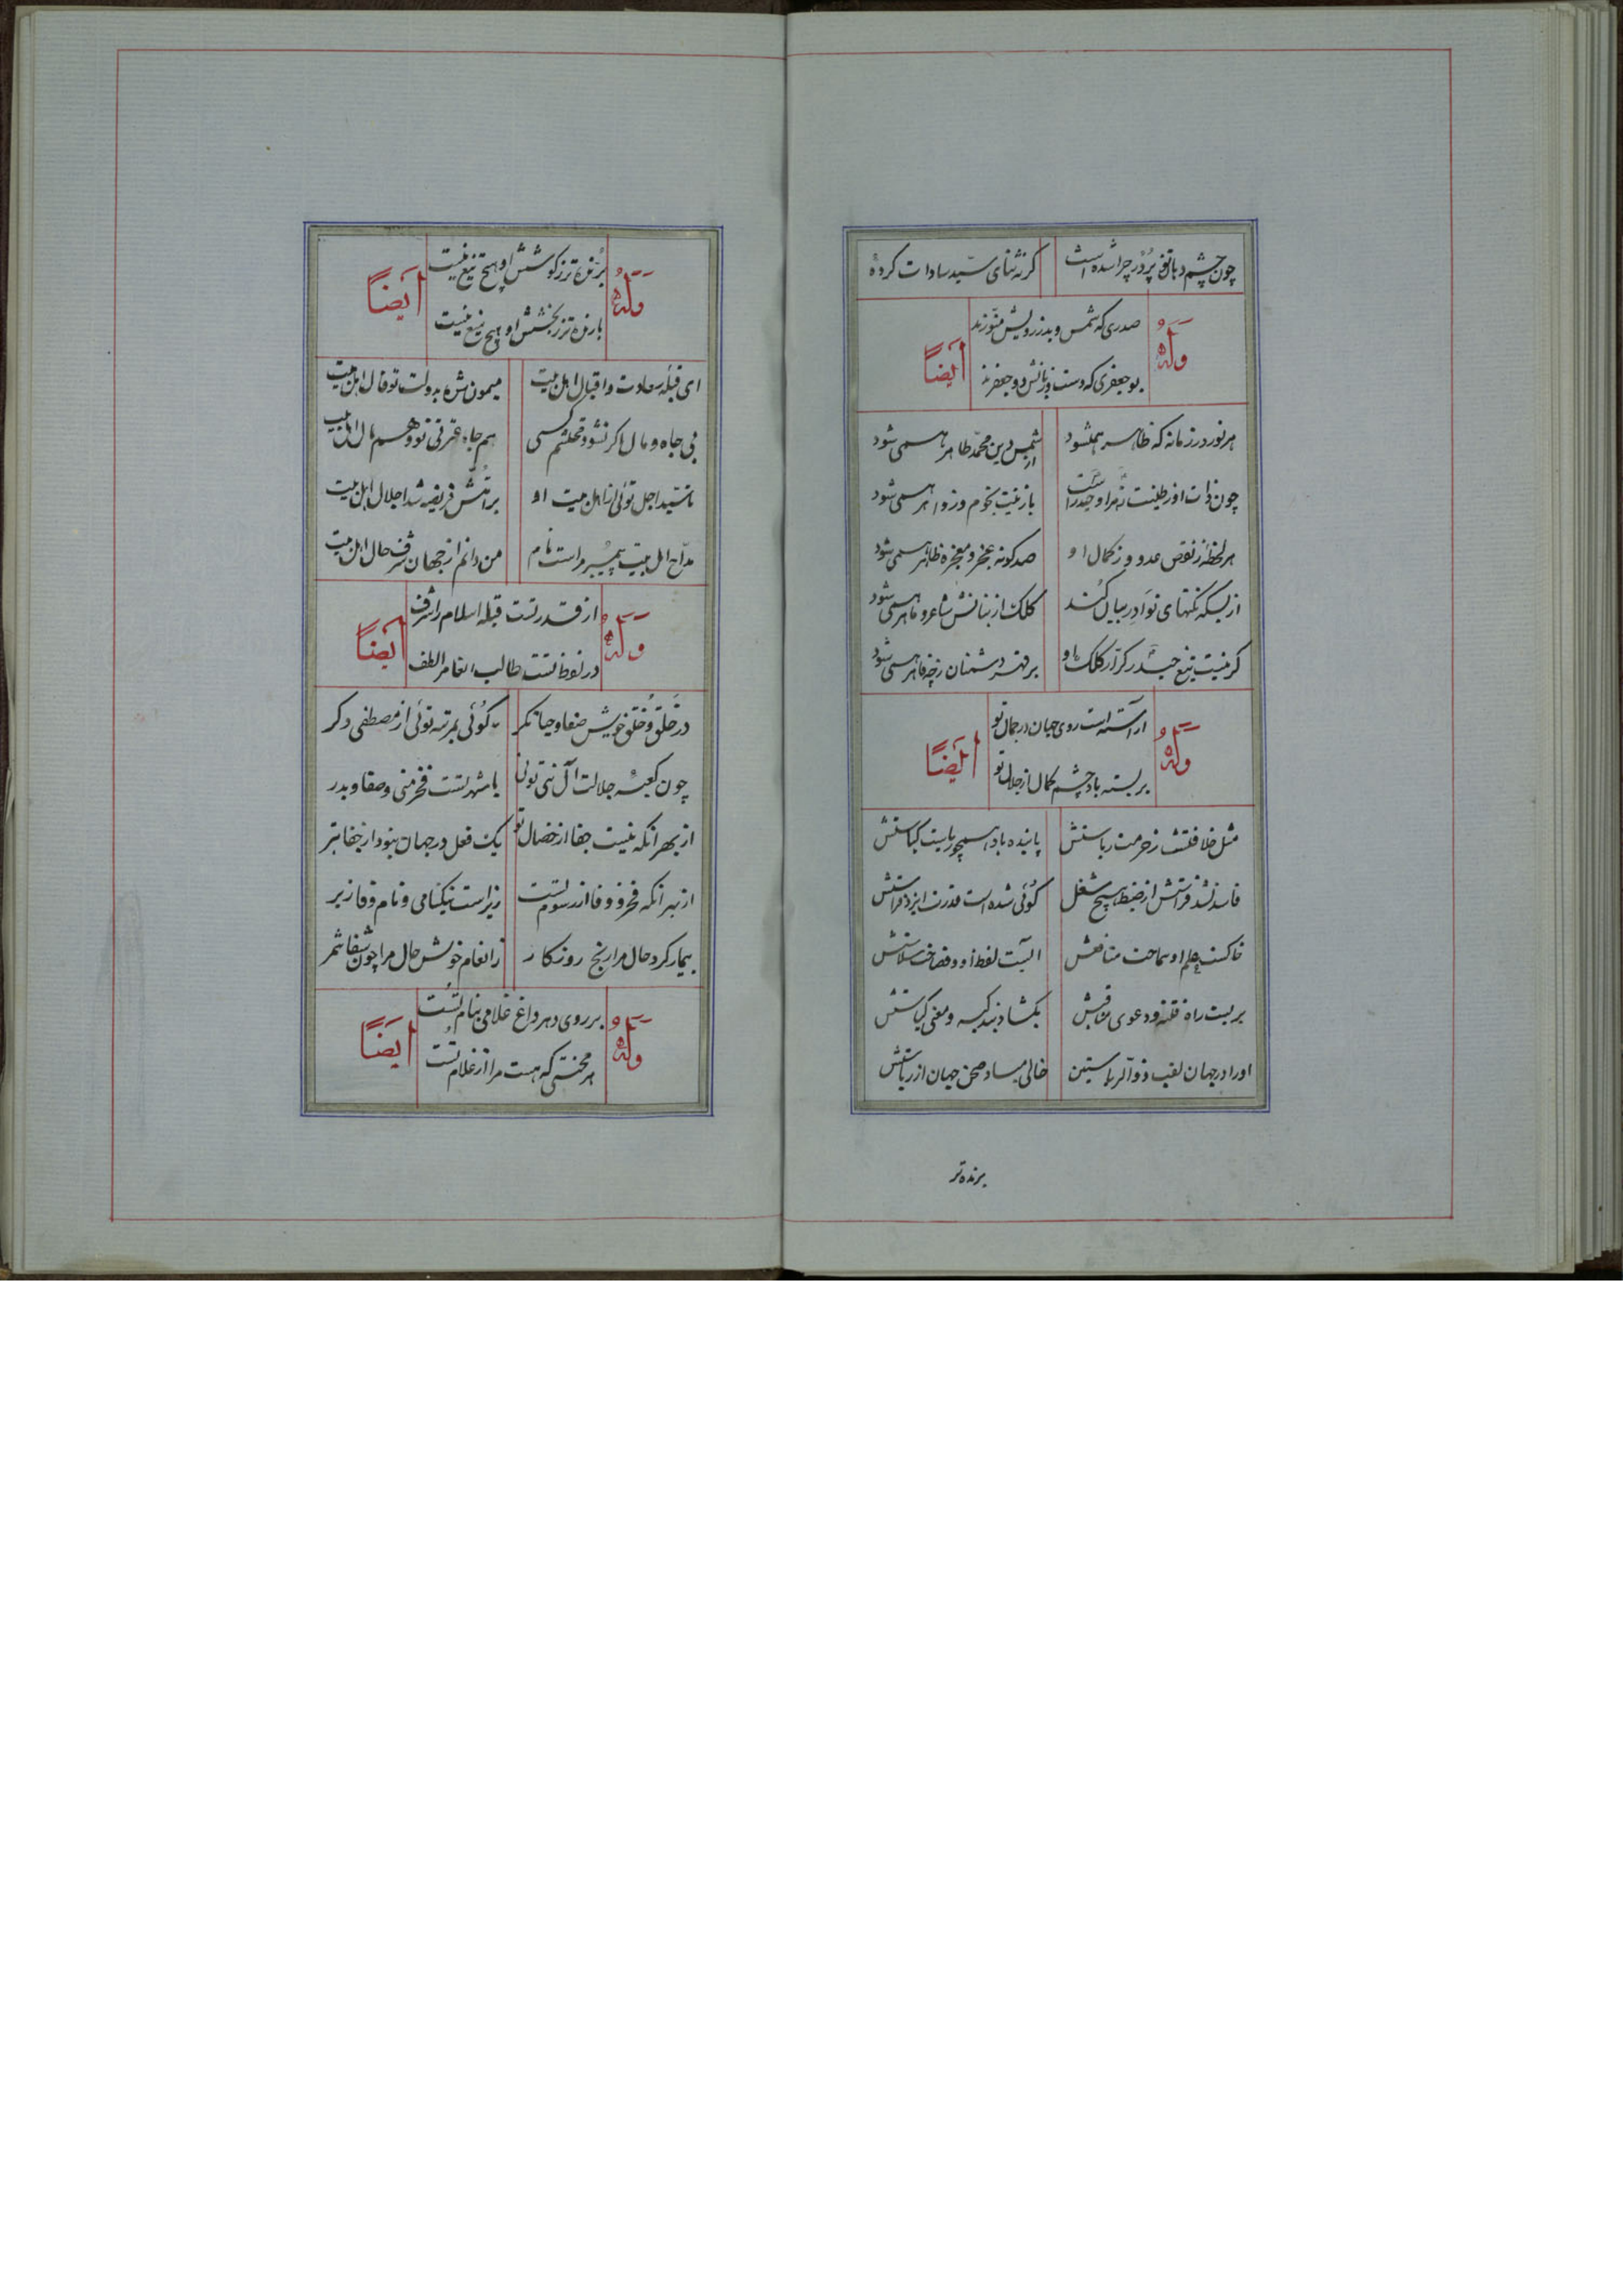 چون چشم دهانم پُر دُر چرا شده است    گر نه ثنای سیّد سادات کرده
وَلَهُ    صدری که شمس و بدر ز رویش منوّرند    اَیضاً
بوجعفری که دست و زبانش دو جعفرند
هر نور در زمانه که ظاهر همیشود    از شمس دین محمّد طاهر همی شود
چون ذات او ز طینت زهرا و حیدر است    بازینت نجوم زواهر همی شود
هر لحظه ز نقص عدو و ز کمال او    صد گونه عجز و معجزه ظاهر همی شود
از بسکه نکتهای نوادر بیان کند    کلک از بنانش شاعر و ماهر همی شود
گر نیست تیغ حیدر کرّار کلک او    بر قهر دشمنان ز چه قاهر همی شود
وَلَهُ    آراسته است روی جهان در جمال تو    اَیضاً
بر بسته باد چشم کمال از جلال تو
مثل خلافتست ز حرمت ریاستش    پاینده باد همچو ریاست کیاستش
فاسد نشد فراستش از ضبط هیچ شغل    گوئی شده است قدرت ایزد فراستش
خاکست حلم او سماحت منافعش    آبست لفظ او و فصاحت سلاستش
بر بست راه فتنه و دعوی مناقبش    بگشاد بند کیسه و معنی کیاستش
او را در جهان لقب ذو الریاستین    خالی مباد صحن جهان از ریاستش
برنده تر
وَلَهُ    بُرّنده تر ز کوشش او هیچ تیغ نیست    اَیضاً
بارنده تر ز بخشش او هیچ میغ نیست
ای قبله سعادت و اقبال اهل بیت    میمون شده بدولت تو فال اهل بیت
بی جاه و مال اگر نشود محتشم کسی    هم جاه عترتی تو و هم مال اهل بیت
تا سیّد اجل توئی از اهل بیت او    بر امّتش فریضه شد اجلال اهل بیت
مدّاح اهل بیت پیمبر مراست نام    من دانم از جهان شرف حال اهل بیت
وَلَهُ    از قدر تست قبله اسلام را شرف    اَیضاً
در لفظ تست طالب انعام را لطف
در خَلق و خُلق خویش صفا و حیا نگر    گوئی بمرتبه توئی از مصطفی دگر
چون کعبه جلالت آل نبی توئی    با شهر تست فخر منی و صفا و بدر
از بهر آنکه نیست جفا از خصال تو    یک فعل در جهان نبود از جفا بتر
از بهر آنکه فخر و وفا از رسوم تست    زیراست نیکنامی و نام وفا زبر
بیمار کرد حال مرا رنج روزگار    ز انعام خویش حال مرا چون شفا شمر
وَلَهُ    بر روی دهر داغ غلامی بنام تست    اَیضاً
هر محنتی که هست مرا از غلام تست